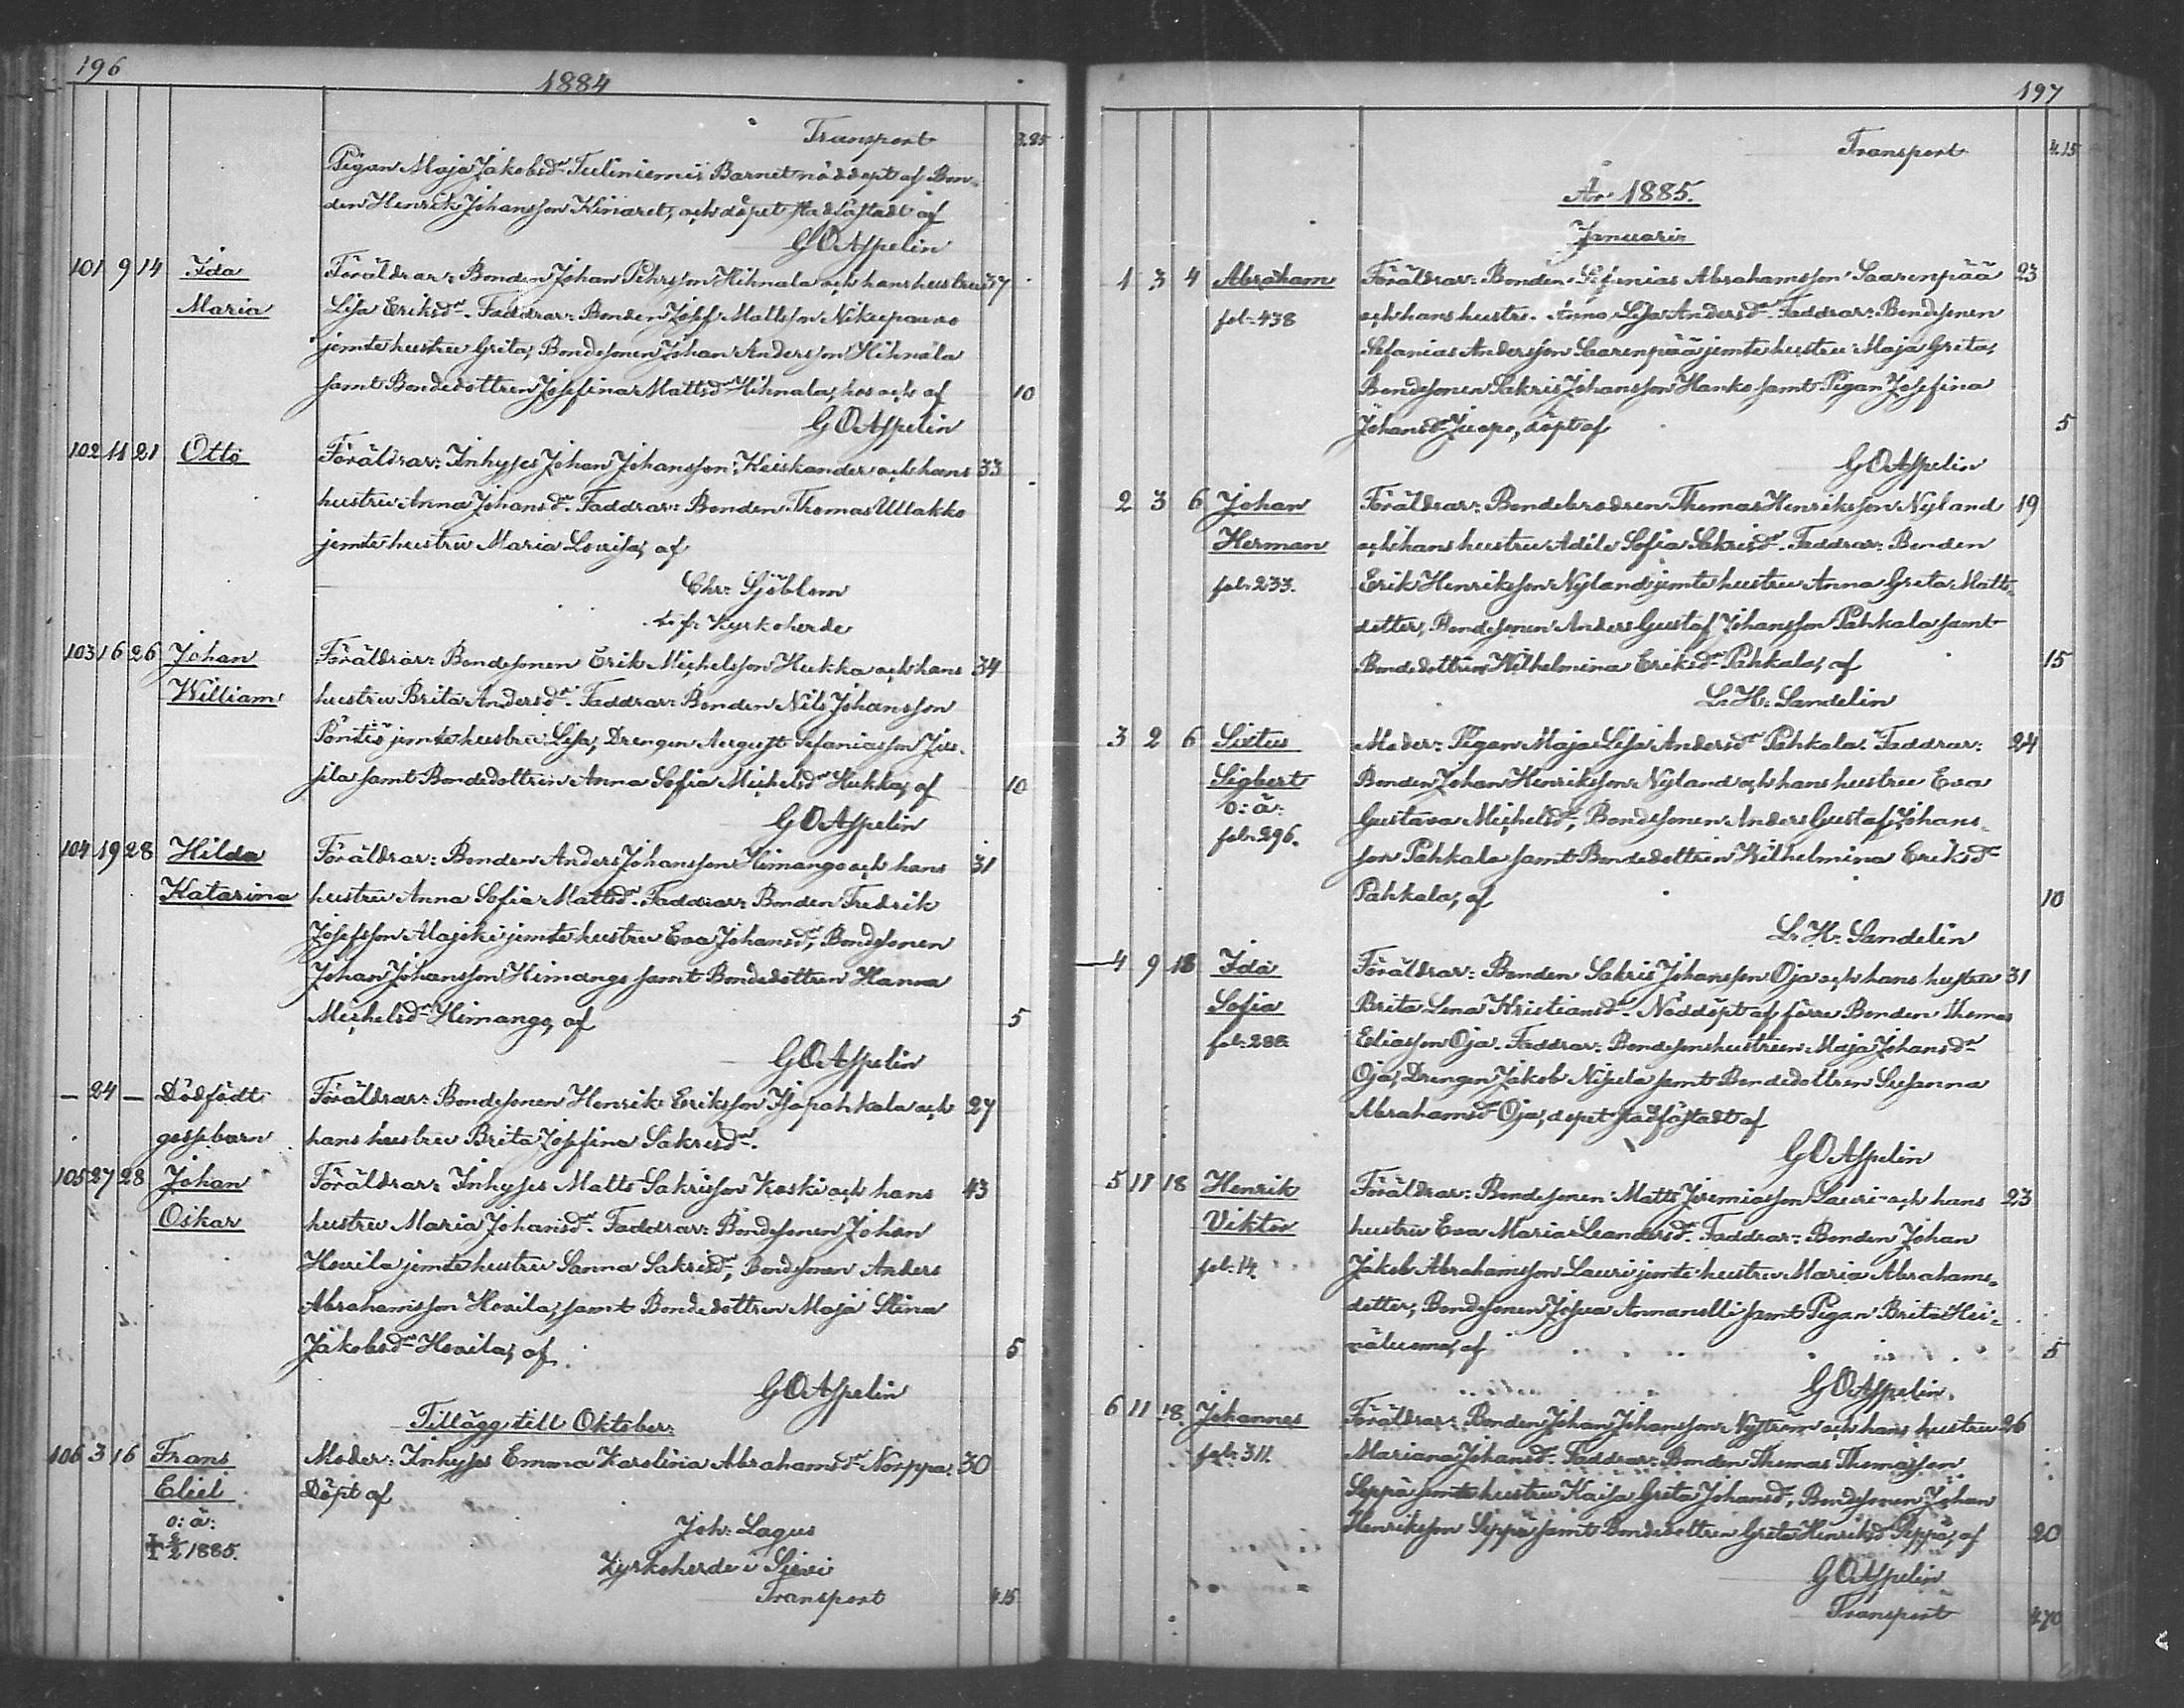 196
1884
Transport 3.85
Pigan Maja Jakobsdr Tuliniemi; Barnet nöddöpt af Bon-
den Henrik Johansson Kinaret, och döpet stadfästadt af
G O Aspelin
101 9 14 Ida Föräldrar: Bonden Johan Pehrsson Hihnala och hans hustru 37
Maria Lisa Eriksdr. Faddrar: Bonden Josef Mattsson
jemte hustru Greta, Bondesonen Johan Andersson Hihnala
samt Bondedottren Josefina Mattsdr Hihnala, hos och af 10
G O Aspelin
102 11 21 Otto Föräldrar: Inhyses Johan Johansson Keiskander och hans 33
hustru Anna Johansdr. Faddrar: Bonden Thomas Ullakko
jemte hustru Maria Lovisa, af
Chr. Sjöblom
t.f. Kyrkoherde
103 16 26 Johan Föräldrar: Bondesonen Erik Michelsson Hukka och hans 34
William hustru Brita Andersdr. Faddrar: Bonden Nils Johansson
Pöntiö jemte hustru Lisa, Drengen August Sefaniasson Jus-
sila samt Bondedottren Anna Sofia Michelsdr Hukka, af 10
G O Aspelin
104 19 28 Hilda Föräldrar: Bonden Anders Johansson Himango och hans 31
Katarina hustru Anna Sofia Mattsdr. Faddrar: Bonden Fredrik
Josefsson Alajoki jemte hustru Eva Johansdr, Bondesonen
Johan Johansson Himango samt Bondedottren Hanna
Michelsdr Himango, af 5
G O Aspelin
— 24 — Dödfödt Föräldrar: Bondesonen Henrik Eriksson Isopahkala och 27
gossebarn hans hustru Brita Josefina Sakrisdr.
105 27 28 Johan Föräldrar: Inhyses Matts Sakrisson Koski och hans 43
Oskar hustru Maria Johansdr. Faddrar: Bondesonen Johan
Hovila jemte hustru Sanna Sakrisdr, Bondesonen Anders
Abrahamsson Hovila, samt Bondedottren Maja Stina
Jakobsdr Hovila, af 5
G O Aspelin
Tillägg till Oktober:
106 3 16 Frans Moder: Inhyses Emma Karolina Abrahamsdr Norppa. 30
Eliel Döpt af
o: ä: Joh. Lagus
1885. Kyrkoherde i Sievi
Transport 4.15
197
Transport 4.15
År 1885.
Januari
1 3 4 Abraham Föräldrar: Bonden Sefanias Abrahamsson Saarenpää 23
fol. 438 och hans hustru Anna Lisa Andersdr. Faddrar: Bondesonen
Sefanias Andersson Saarenpää jemte hustru Maja Greta,
Bondesonen Sakris Johansson Hanko samt Pigan Josefina
Johansdr Juopo, döpt af 5
G O Aspelin
2 3 6 Johan Föräldrar: Bondebrodren Thomas Henriksson Nyland 19
Herman och hans hustru Adele Sofia Sakrisdr. Faddrar: Bonden
fol. 233. Erik Henriksson Nyland jemte hustru Anna Greta Matts-
dotter, Bondesonen Anders Gustaf Johansson Pahkala samt
Bondedottren Wilhelmina Eriksdr Pahkala, af 15
L. H. Sandelin
3 2 6 Sixtus Moder: Pigan Maja Lisa Andersdr Pahkala. Faddrar: 24
Sigbert Bonden Johan Henriksson Nyland och hans hustru Eva
o: ä: Gustava Michelsdr, Bondesonen Anders Gustaf Johans-
fol. 296. son Pahkala samt Bondedottren Wilhelmina Eriksdr
Pahkala, af 10
L. H. Sandelin
4 9 18 Ida Föräldrar: Bonden Sakris Johansson Oja och hans hustru 31
Sofia Brita Lena Kristiansdr. Nöddöpt af förre Bonden Thomas
fol. 288. Eliasson Oja. Faddrar: Bondesonshustrun Maja Johansdr
Oja, Drengen Jakob Nisula samt Bondedottren Susanna
Abrahamsdr Oja, döpet stadfästadt af
G O Aspelin
5 11 18 Henrik Föräldrar: Bondesonen Matts Jeremiasson Lauri och hans 23
Viktor hustru Eva Maria Leandersdr. Faddrar: Bonden Johan
fol. 14. Jakob Abrahamsson Lauri jemte hustru Maria Abrahams-
dotter, Bondesonen Josua Annanolli samt Pigan Brita Hei-
näluoma, af 5
G O Aspelin
6 11 18 Johannes Föräldrar: Bonden Johan Johansson Nyström och hans hustru 26
fol. 311. Mariana Johansdr. Faddrar: Bonden Thomas Thomasson
Seppä jemte hustru Kaisa Greta Johansdr, Bondesonen Johan
Henriksson Seppä samt Bondedottren Greta Henriksdr Seppä, af 20
G O Aspelin
Transport 4.70